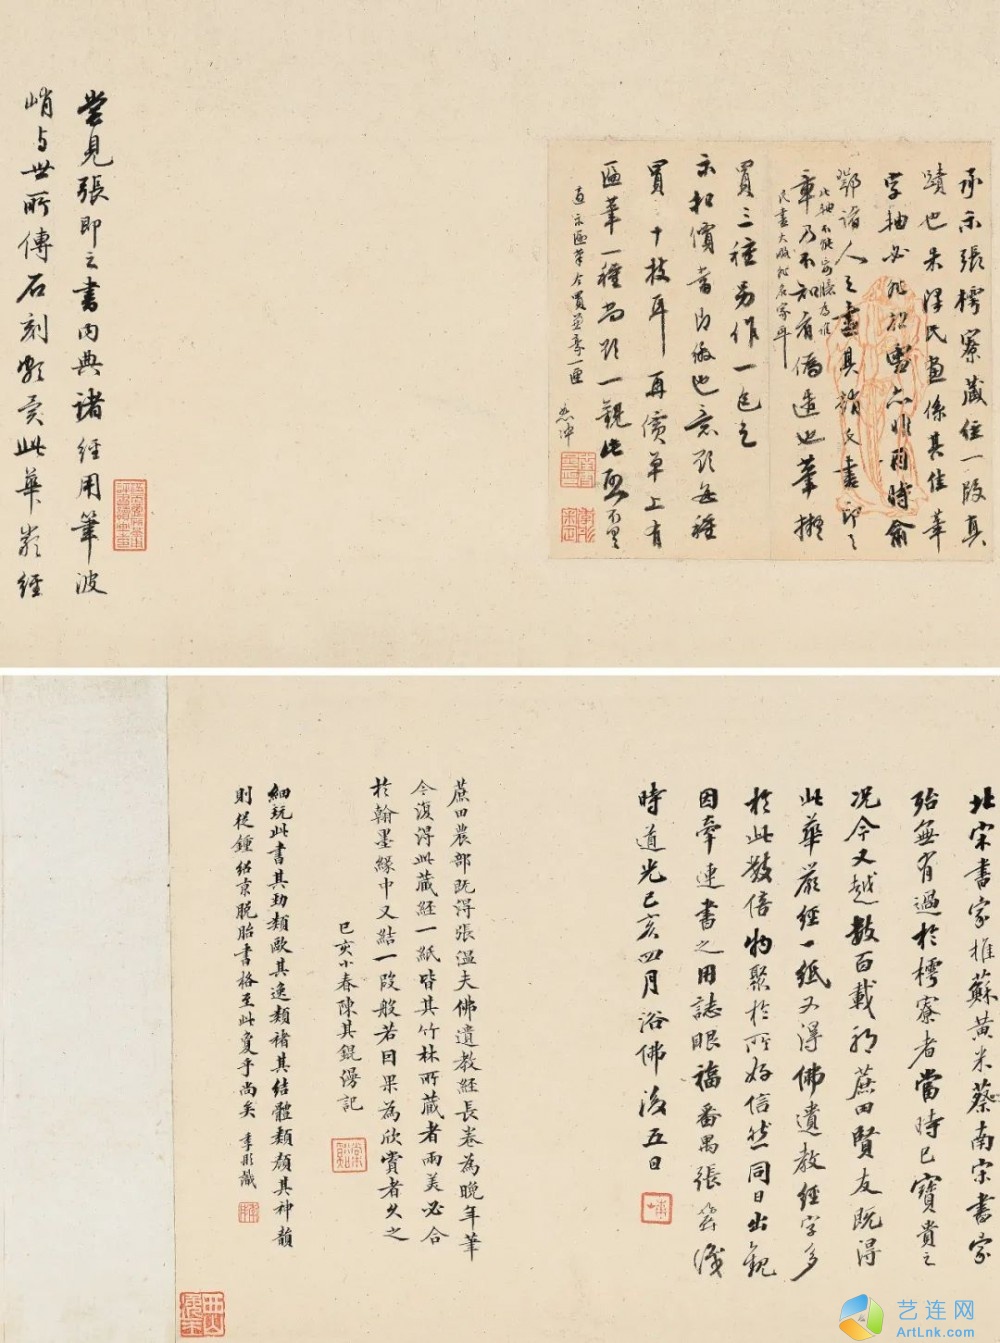 承示張樗寮藏經一段真
蹟也朱澤民畫係其佳筆
字軸必非松雪亦非同時俞
鄧諸人之畫具趙氏書印之
章乃不知有偽造也筆擬
此軸不能審臆為誰
氏畫大概松居家耳
買三種另作一包乞
示扣價當即繳也意致每種
買二十枝耳再價單上有
匾筆一種尚致一觀此頌
嘗見張即之書內典諸經用筆波
峭與世所傳石刻類異此華嚴經
北宋書家推蘇黃米蔡南宋書家
殆無有過於樗寮者當時已寶貴之
況今又越數百載耶蔗田賢友既得
此華嚴經一紙又得佛遺教經字多
於此數倍物聚於所好信然同日出觀
因牽連書之用誌眼福番禺張
時道光己亥四月浴佛後五日
蔗田農部既得張溫夫佛遺教經長卷為晚年筆
今復得此藏經一紙皆其竹林所藏者兩美必合
於翰墨緣中又結一段般若因果為欣賞者久之
己亥小春陳其錕漫記
細玩此書其勁類歐其逸類褚其結體類顏其神韻
則從鍾紹京脫胎書格至此夐乎尚矣 李彤識
艺连网
ArtLnk.com